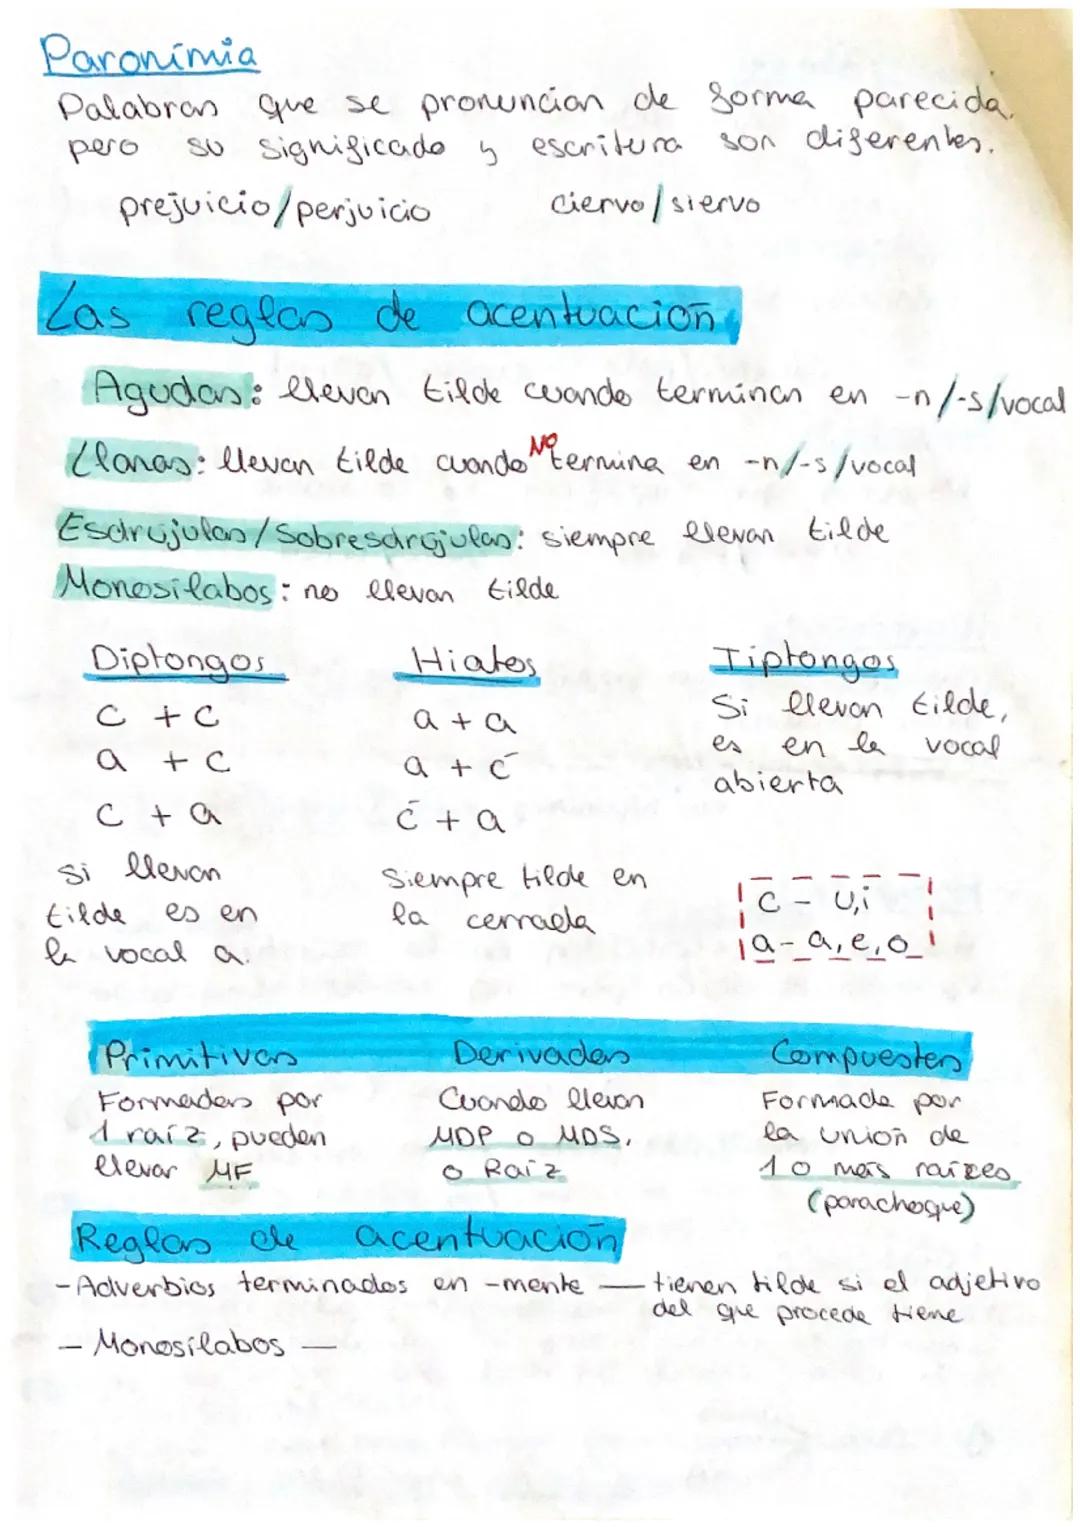 Paronimia
Palabras que se pronuncian de forma parecida,
pero su significado y escritura son diferentes.
prejuicio/perjuicio ciervo/siervo
Las reglas de acentuación
Agudas: llevan tilde cuando terminan en -n/-s/vocal
Llanas: llevan tilde cuando NO termina en -n/-s/vocal
Esdrújulas/Sobresdrújulas: siempre llevan tilde
Monosílabos: no llevan tilde
Diptongos Hiatos Tiptongos
c + c a + a Si llevan tilde,
a + c a + ć es en la vocal
c + a ć + a abierta
si llevan siempre tilde en
tilde es en la cerrada
la vocal a.
c - u,i
a - a, e, o
Primitivas Derivadas Compuestas
Formadas por Cuando llevan Formada por
1 raíz, pueden MDP o MDS, la unión de
llevar MF o Raíz 1 o más raíces
(parachoque)
Reglas de acentuación
- Adverbios terminados en -mente — tienen tilde si el adjetivo
del que procede tiene
- Monosílabos —